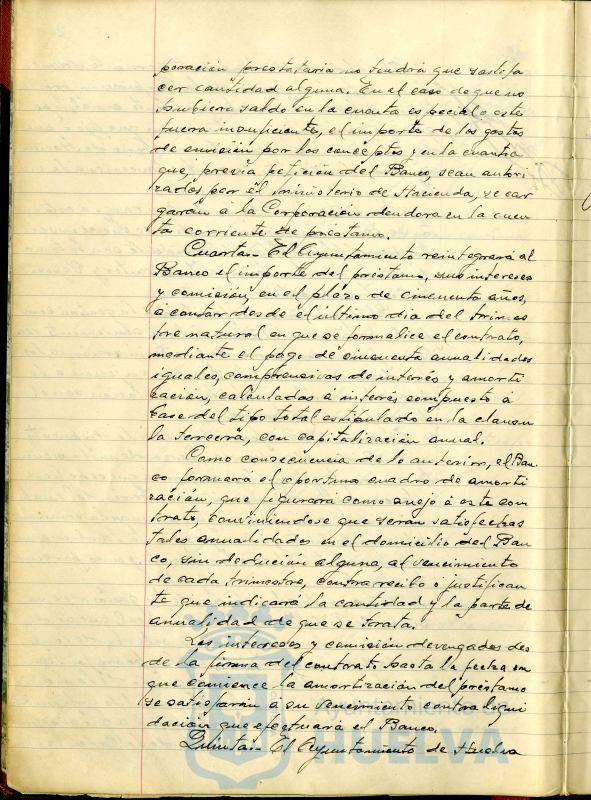 poración prestataria no tendrá que satisfa
cer cantidad alguna. En el caso de que no
hubiera saldo en la cuenta especial o este
fuera insuficiente, el importe de los gastos
de emisión por los conceptos y en la cuantía
que, previa petición del Banco, sean autori
zados por el Ministerio de Hacienda, se car
garán a la Corporación deudora en la cuen
ta corriente de prestamo.
Cuarta.- El Ayuntamiento reintegrará al
Banco el importe del préstamo, sus intereses
y comisión en el plazo de cincuenta años,
a contar desde el último día del trimes
tre natural en que se formalice el contrato,
mediante el pago de cincuenta anualidades
iguales, comprensivas de interés y amorti
zación, calculadas a interés compuesto a
base del tipo total estipulado en la clausu
la tercera, con capitalización anual.
Como consecuencia de lo anterior, el Ban
co formará el oportuno cuadro de amorti
zación, que figurará como anejo a este con
trato, conviniendose que seran satisfechas
tales anualidades en el domicilio del Ban
co, sin dedución alguna, al vencimiento
de cada trimestre, contra recibo o justifican
te que indicará la cantidad y la parte de
anualidad de que se trata.
Los intereses y comisión devengados des
de la firma del contrato hasta la fecha en
que comience la amortización del préstamo
se satisfarán a su vencimiento contra liqui
dación que efectuará el Banco.
Quinta.- El Ayuntamiento de Huelva
HUELVA